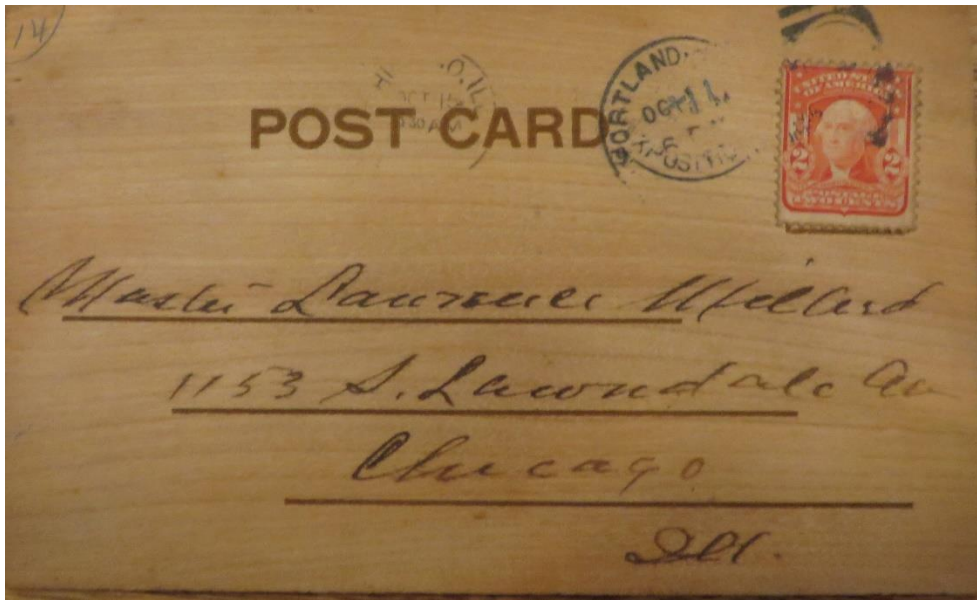 14
O, ILL
OCT 15
POST CARD
PORTLAND
OCT 11
EXPOSITION
UNITED STATES
OF AMERICA
2 2
POSTAGE
TWO CENTS
Master Lawrence Millard
1153 S. Lawndale Av
Chicago
Ill.